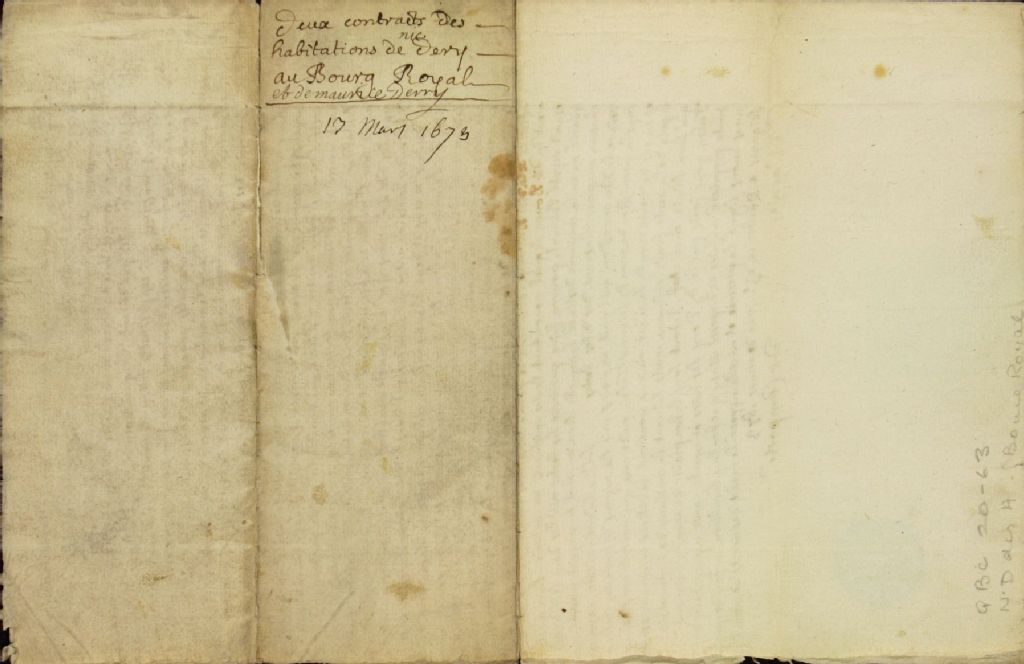 Deux contracts des
habitations de Dery
au Bourg Royal
et de maurice Derry
13 Mars 1673
QBC 20-63
N. D des A. (Bourg Royal